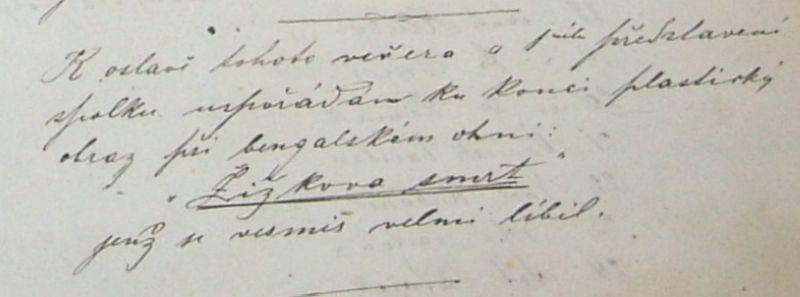 K oslavě tohoto večera a představení
spolku uspořádán ku konci plastický
obraz při bengalském ohni:
"Žižkova smrt"
jenž se vesmiš velmi líbil.